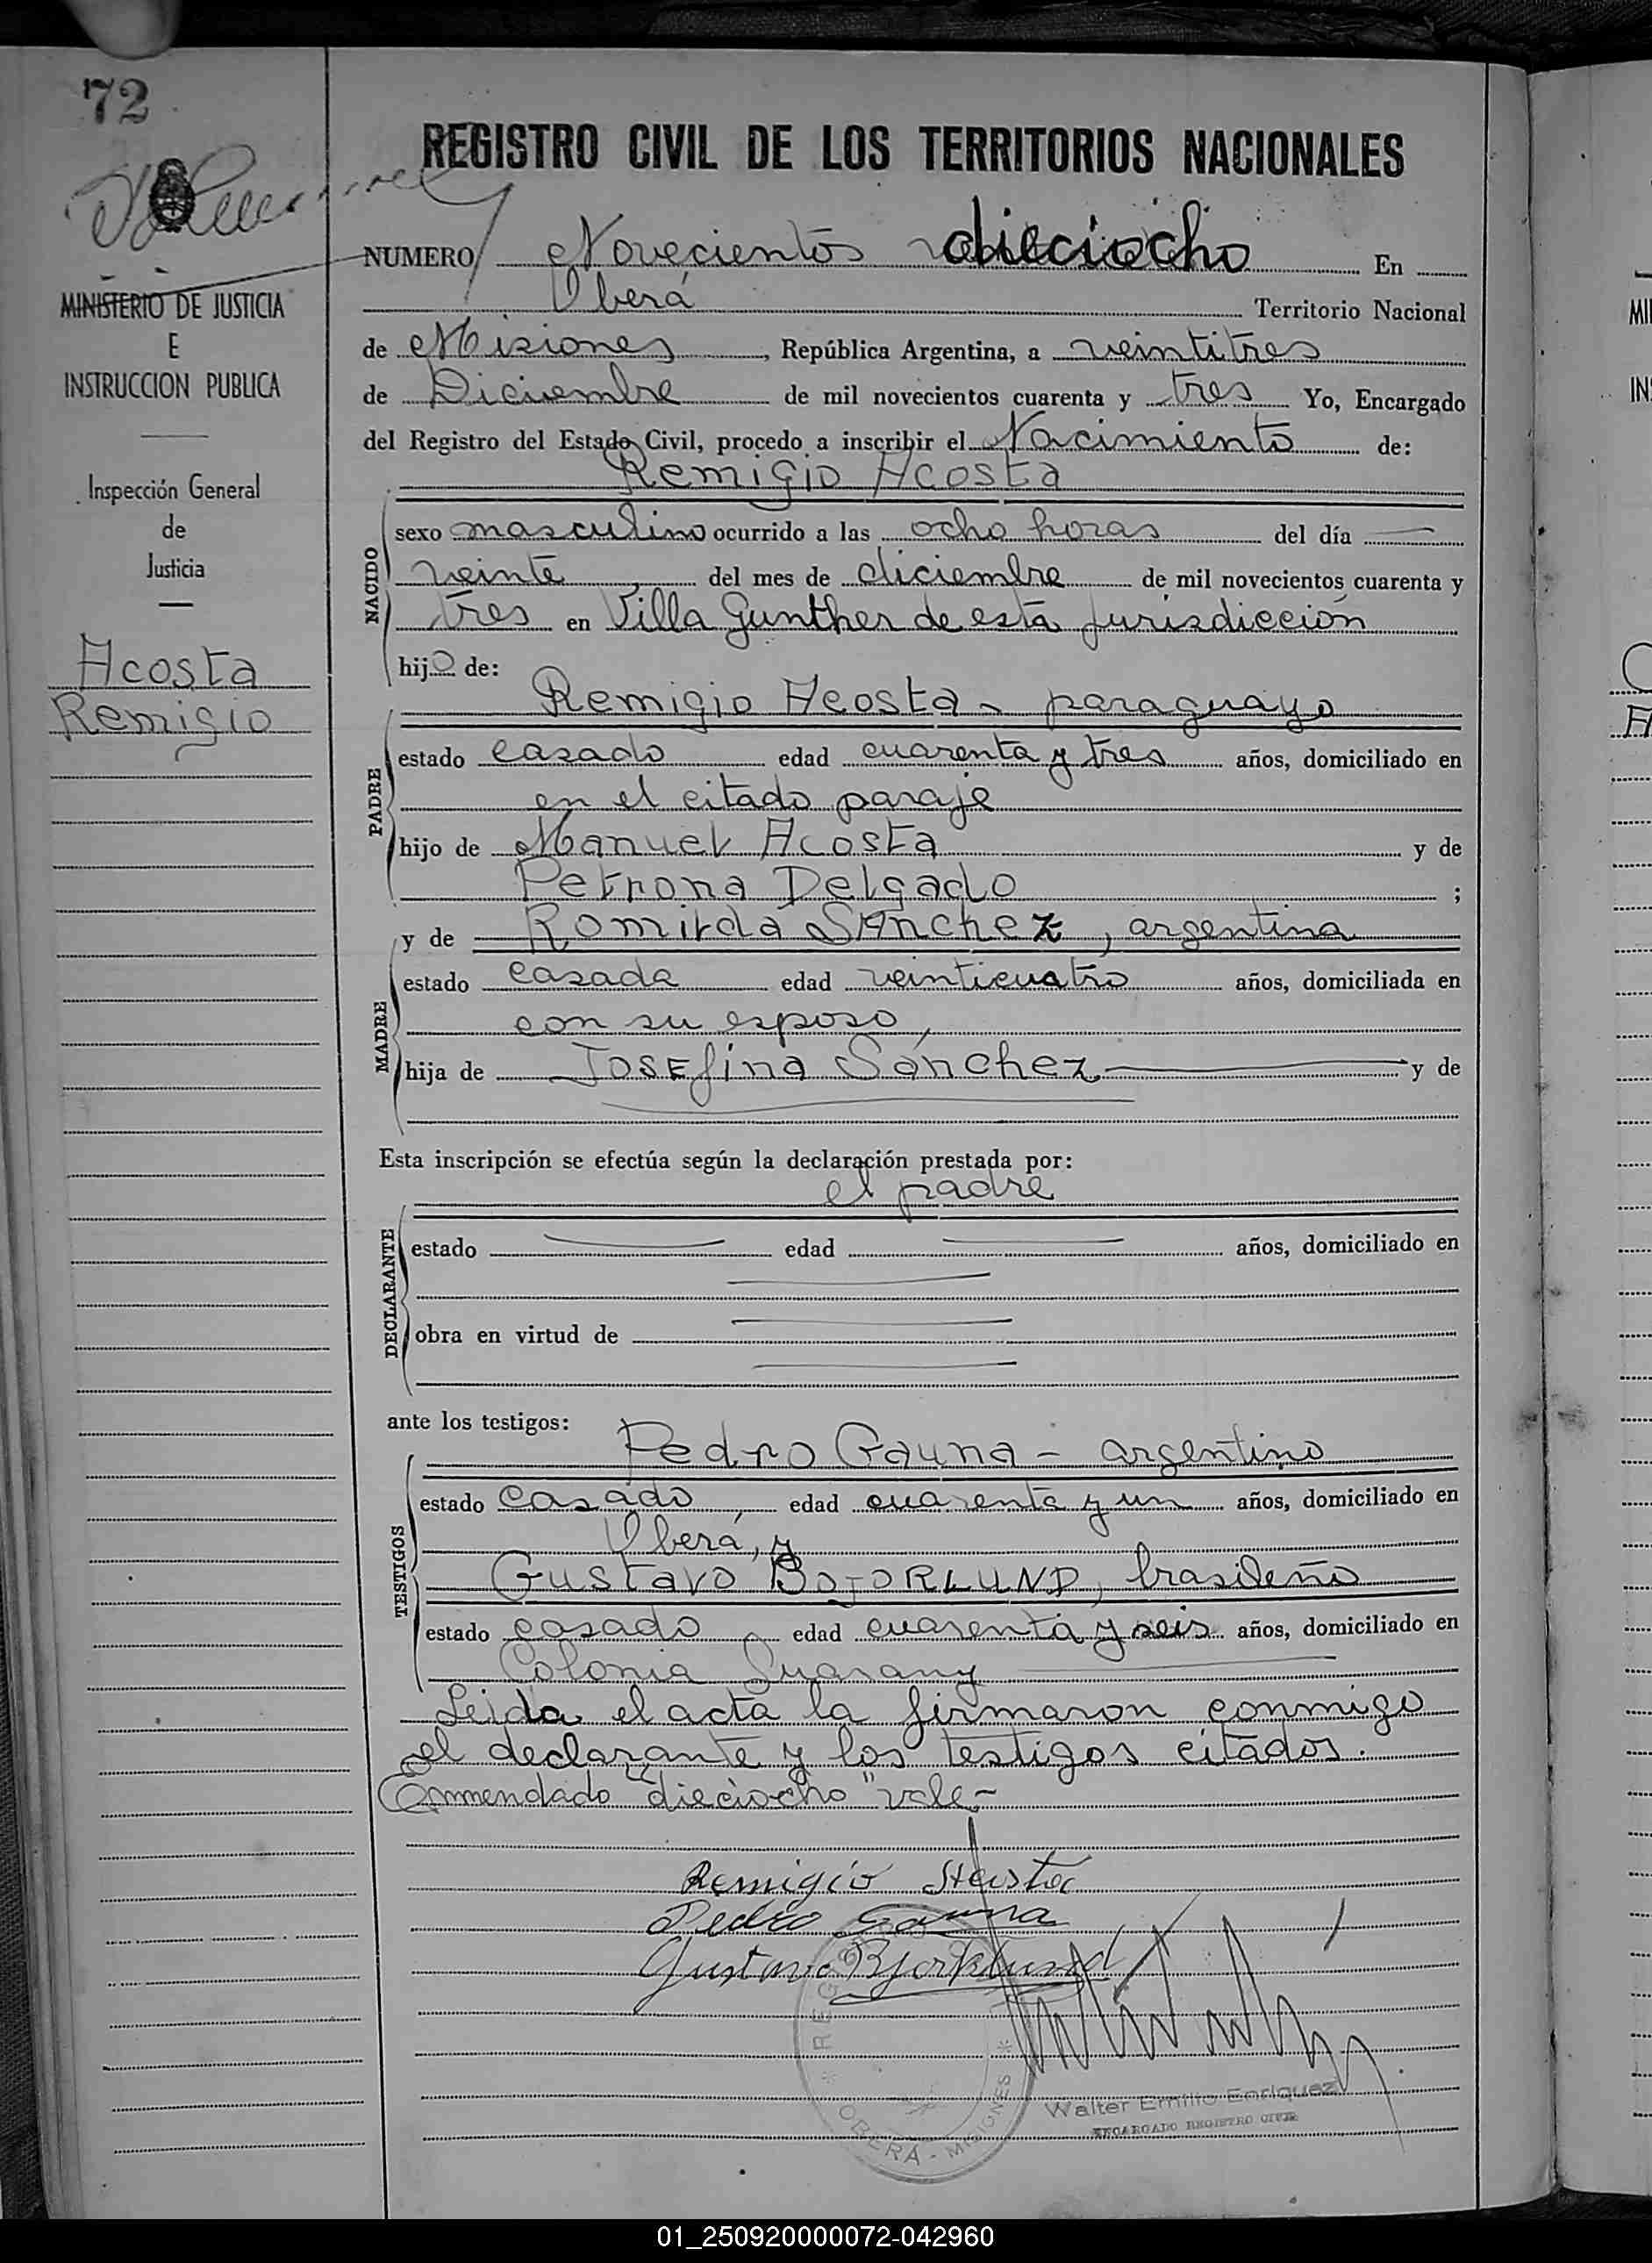 72
REGISTRO CIVIL DE LOS TERRITORIOS NACIONALES
NUMERO Novecientos dieciocho En
Oberá Territorio Nacional
de Misiones, República Argentina, a veintitres
de Diciembre de mil novecientos cuarenta y tres Yo, Encargado
del Registro del Estado Civil, procedo a inscribir el Nacimiento de:
Remigio Acosta
MINISTERIO DE JUSTICIA
E
INSTRUCCION PUBLICA
Inspección General
de
Justicia
Acosta
Remigio
NACIDO
sexo masculino ocurrido a las ocho horas del día
veinte del mes de diciembre de mil novecientos cuarenta y
tres en Villa Gunther de esta jurisdicción
hijo de:
Remigio Acosta - paraguayo
PADRE
estado casado edad cuarenta y tres años, domiciliado en
en el citado paraje
hijo de Manuel Acosta y de
Petrona Delgado ;
y de Romilda Sánchez, argentina
MADRE
estado casada edad veinticuatro años, domiciliada en
con su esposo,
hija de Josefina Sánchez y de
Esta inscripción se efectúa según la declaración prestada por:
el padre
DECLARANTE
estado edad años, domiciliado en
obra en virtud de
ante los testigos:
Pedro Gauna - argentino
TESTIGOS
estado casado, edad cuarenta y un años, domiciliado en
Oberá, y
Gustavo BOJORLUND, brasileño
estado casado edad cuarenta y seis años, domiciliado en
Colonia Guarany
Leida el acta la firmaron conmigo
el declarante y los testigos citados.
Enmendado "dieciocho" vale-
Remigio Acosta
Pedro Gauna
Gustavo Bjorklund
REG
OBERÁ - MISIONES
Walter Emilio Enriquez
ENCARGADO REGISTRO CIVIL
01_250920000072-042960